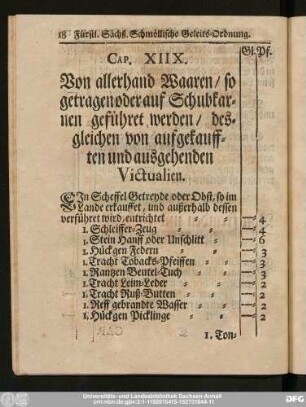 18 Fürstl. Sächß. Schmöllische Geleits-Ordnung.
Gl. Pf.
CAP. XIIX.
Von allerhand Waaren / so
getragen oder auf Schubkar-
nen geführet werden / des-
gleichen von aufgekauff-
ten und ausgehenden
Victualien.
EIn Scheffel Getreyde oder Obst, so im
Lande erkauffet, und ausserhalb dessen
verführet wird, entrichtet 4
1. Schleiffer-Zeug 4
1. Stein Hanff oder Unschlitt 6
1. Hückgen Federn 3
1. Tracht Tobacks-Pfeiffen 3
1. Rantzen Beutel-Tuch 3
1. Tracht Leim-Leder 2
1. Tracht Ruß-Butten 2
1. Reff gebrandte Wasser 2
1. Hückgen Picklinge 2
1. Ton-
Universitäts- und Landesbibliothek Sachsen-Anhalt
urn:nbn:de:gbv:3:1-1192015415-152731844-11
DFG